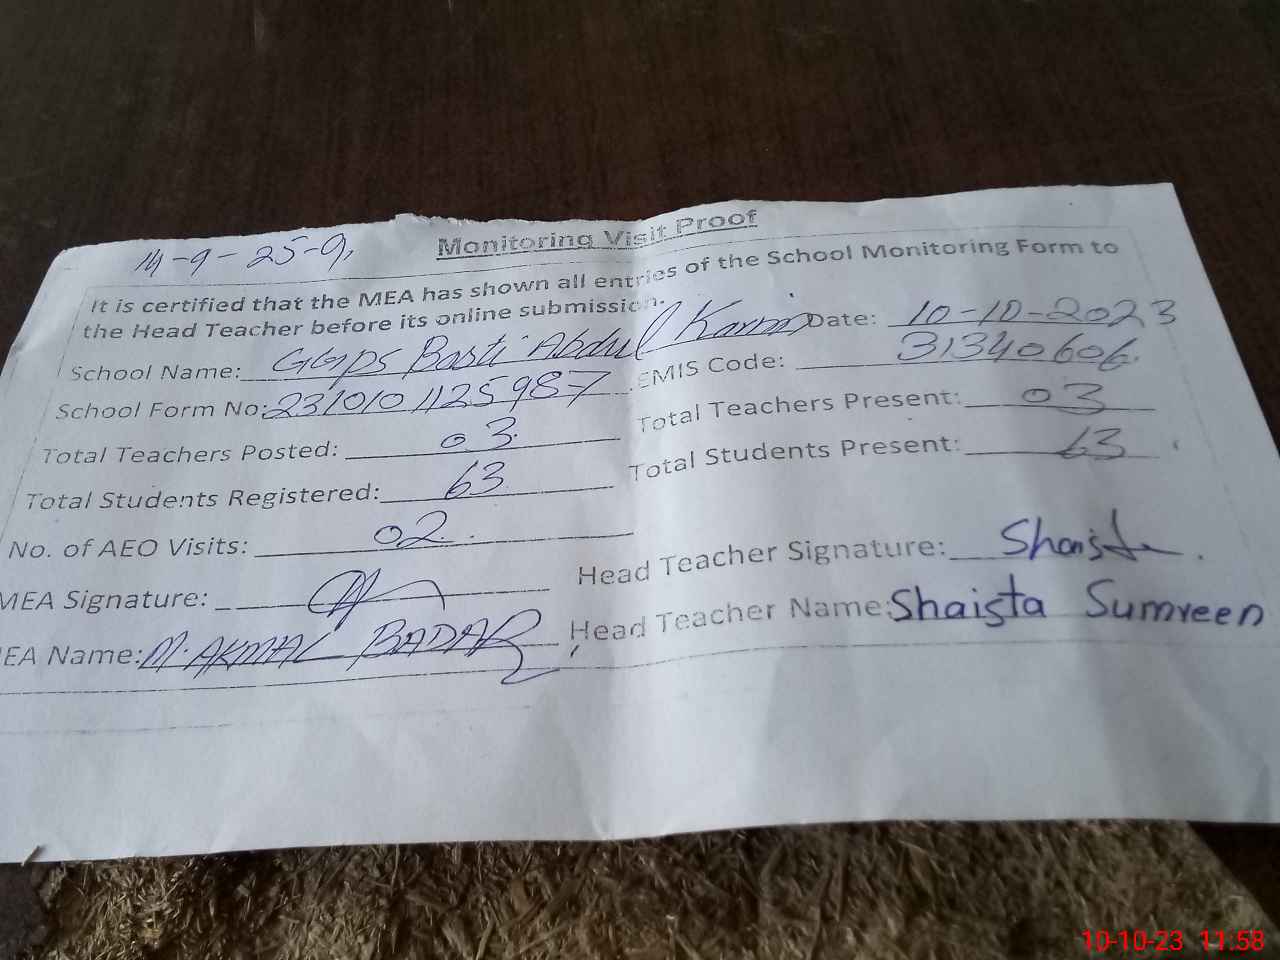 14-9-25-9,
Monitoring Visit Proof
It is certified that the MEA has shown all entries of the School Monitoring Form to
the Head Teacher before its online submission.
School Name: GGPS Basti Abdul Karim Date: 10-10-2023
School Form No: 2310101125987 EMIS Code: 31340606
Total Teachers Posted: 03 Total Teachers Present: 03
Total Students Registered: 63 Total Students Present: 63
No. of AEO Visits: 02
MEA Signature: Head Teacher Signature: Shaista
EA Name: M. AKMAL BADAR Head Teacher Name: Shaista Sumreen
10-10-23 11:58